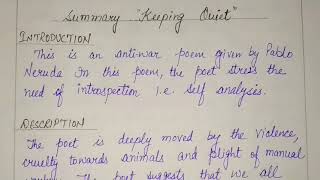 Summary "Keeping Quiet"
INTRODUCTION
This is an anti-war poem given by Pablo
Neruda In this poem, the poet stress the
need of introspection i.e. self analysis.
DESCRIPTION
The poet is deeply moved by the violence,
cruelty towards animals and plight of manual
The poet suggests that we all